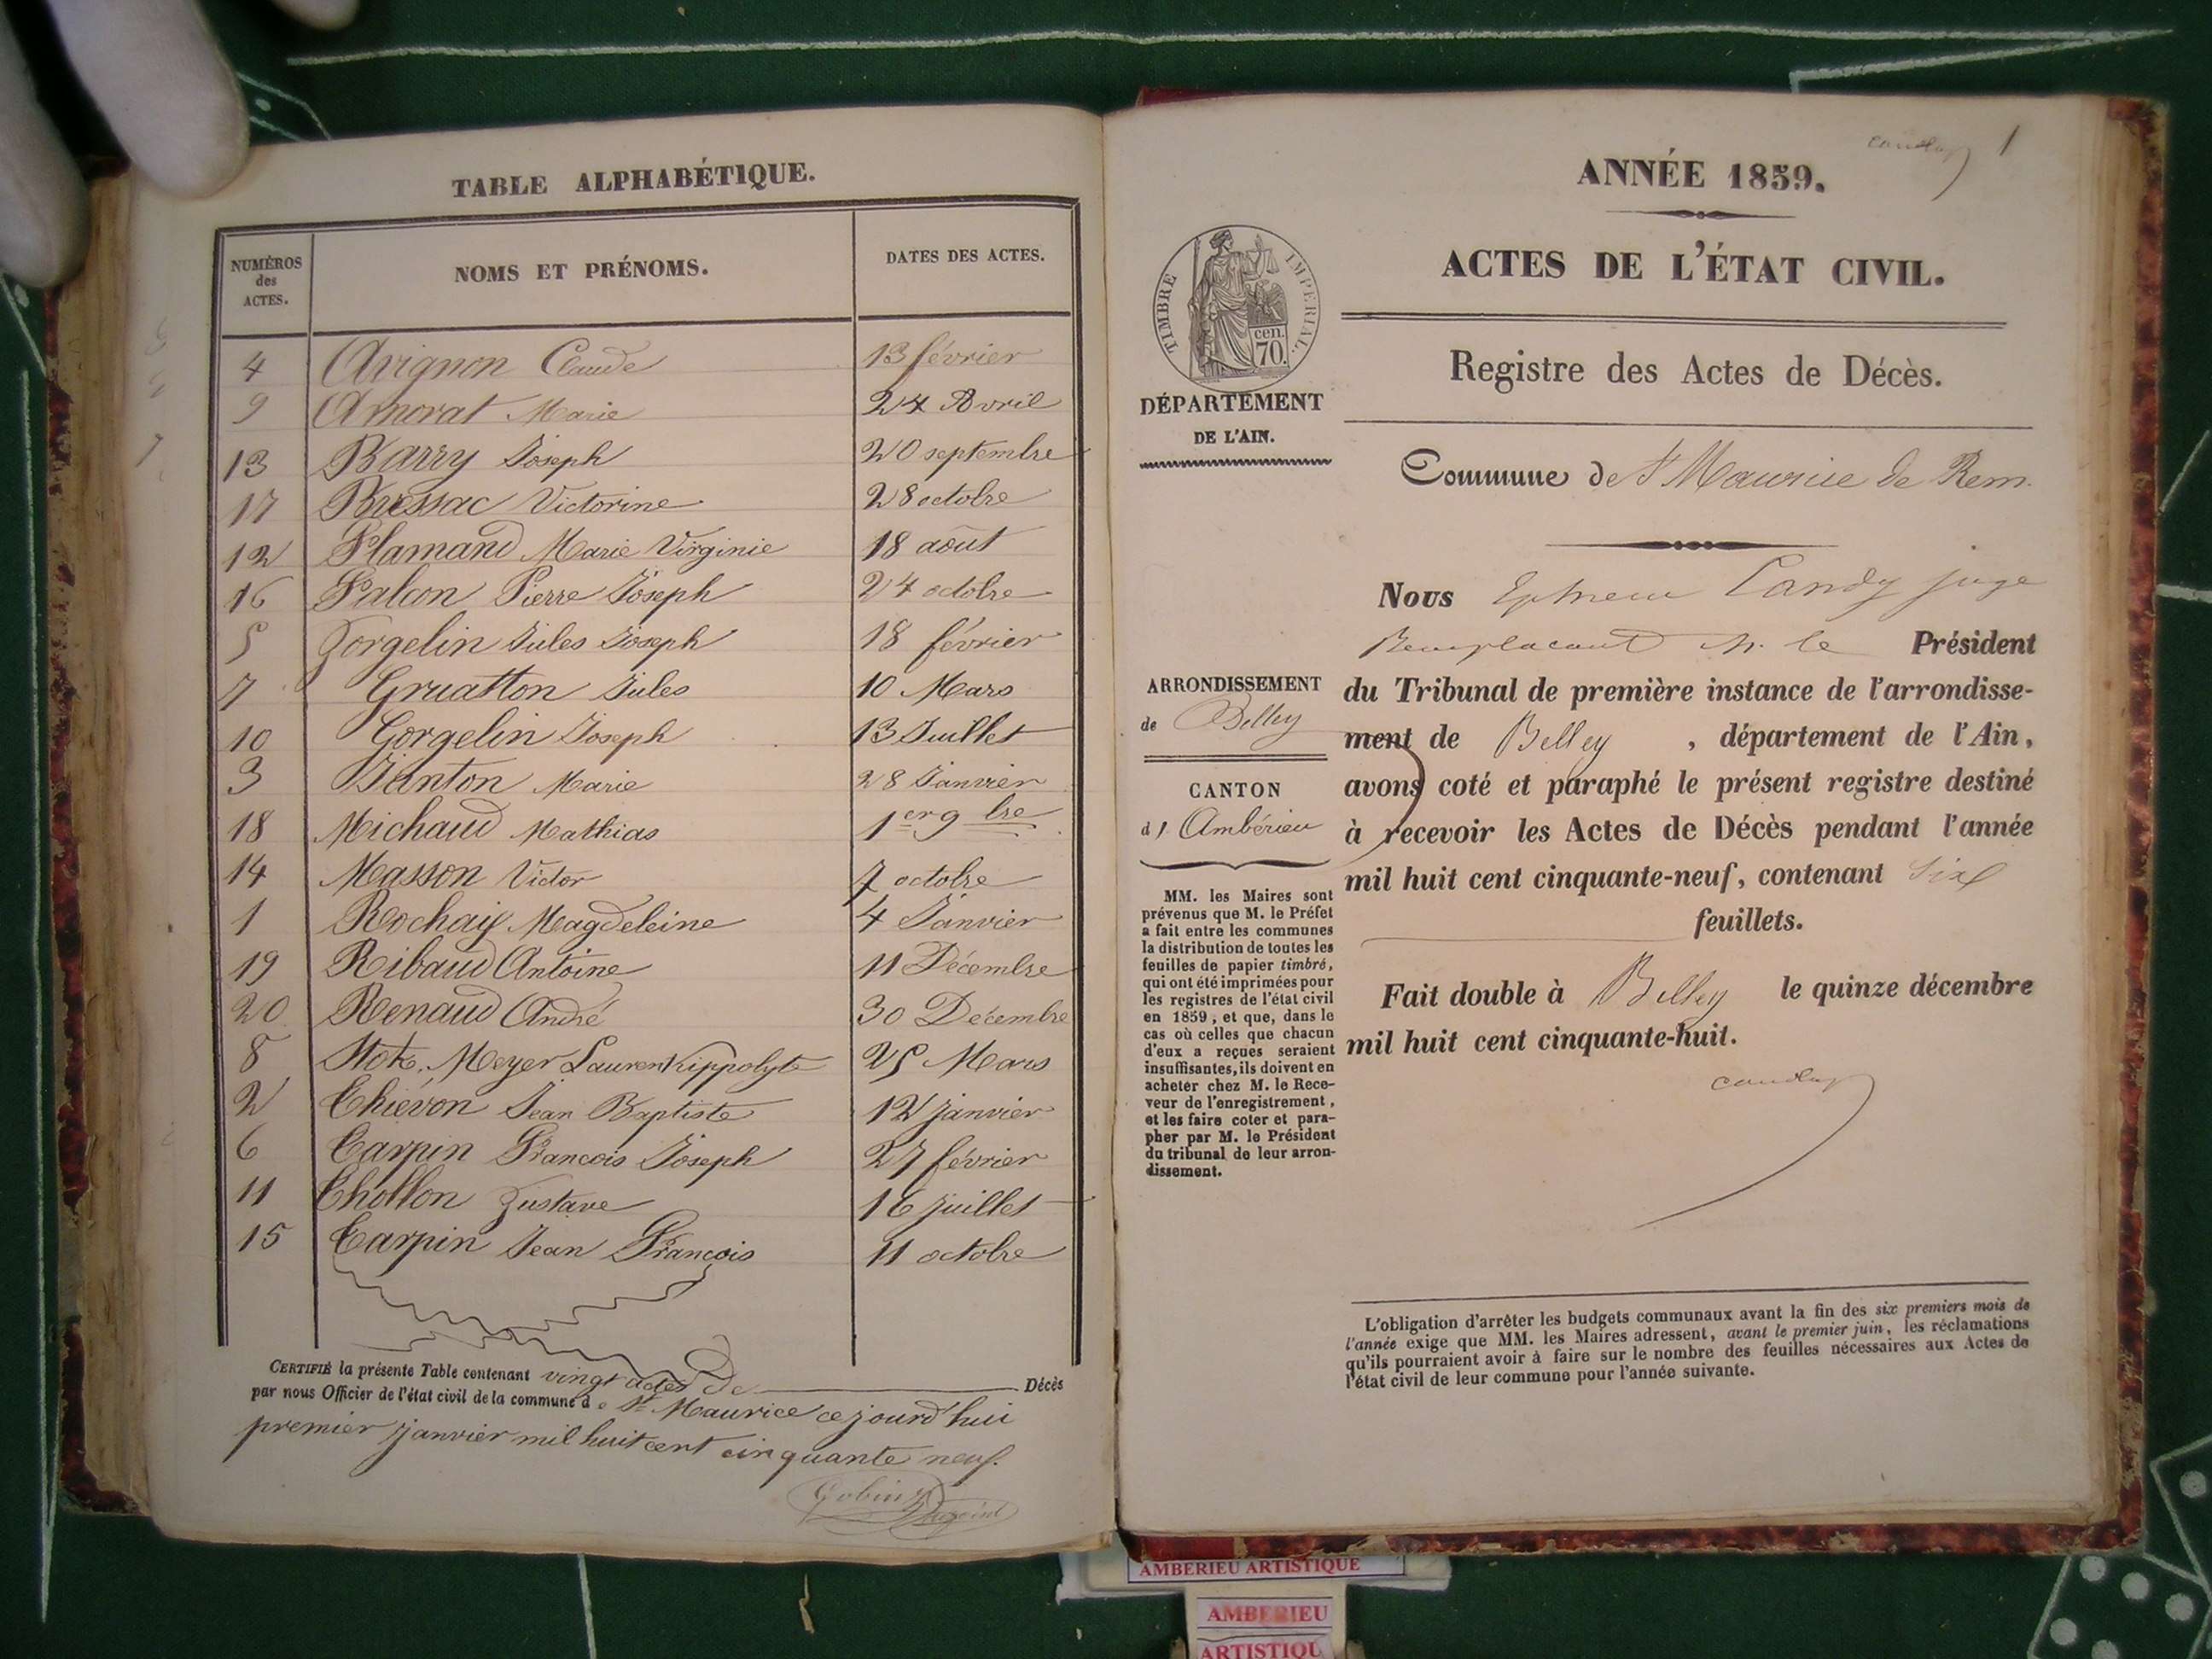 TABLE ALPHABÉTIQUE.
NUMÉROS des ACTES. NOMS ET PRÉNOMS. DATES DES ACTES.
4 Avignon Claude 13 février
9 Amorat Marie 24 Avril
13 Barry Joseph 20 septembre
17 Bressac Victorine 28 octobre
12 Flamand Marie Virginie 18 août
16 Falcon Pierre Joseph 24 octobre
5 Gorgelin Jules Joseph 18 février
7 Gruatton Jules 10 Mars
10 Gorgelin Joseph 13 Juillet
3 Janton Marie 28 Janvier
18 Michaud Mathias 1er 9bre
14 Masson Victor 7 octobre
1 Rochaix Magdeleine 4 Janvier
19 Ribaud Antoine 11 Décembre
20 Renaud André 30 Décembre
8 Meyer Laurent hippolyte 25 Mars
2 Thiévon Jean Baptiste 12 janvier
6 Tarpin Francois Joseph 27 février
11 Thollon Gustave 16 juillet
15 Tarpin Jean François 11 octobre
CERTIFIÉ la présente Table contenant vingt actes de Décès
par nous Officier de l'état civil de la commune de St Maurice ce jourd'hui
premier janvier mil huit cent cinquante neuf.
1
ANNÉE 1859.
ACTES DE L'ÉTAT CIVIL.
TIMBRE IMPÉRIAL.
cen.
70.
Registre des Actes de Décès.
DÉPARTEMENT
DE L'AIN.
Commune de St Maurice de Rem.
Nous Candy juge
Remplacant M. le Président
du Tribunal de première instance de l'arrondisse-
ment de Belley , département de l'Ain,
avons coté et paraphé le présent registre destiné
à recevoir les Actes de Décès pendant l'année
mil huit cent cinquante-neuf, contenant Six
feuillets.
Fait double à Belley le quinze décembre
mil huit cent cinquante-huit.
ARRONDISSEMENT
de Belley
CANTON
d'Ambérieu
MM. les Maires sont
prévenus que M. le Préfet
a fait entre les communes
la distribution de toutes les
feuilles de papier timbré,
qui ont été imprimées pour
les registres de l'état civil
en 1859, et que, dans le
cas où celles que chacun
d'eux a reçues seraient
insuffisantes, ils doivent en
acheter chez M. le Rece-
veur de l'enregistrement,
et les faire coter et para-
pher par M. le Président
du tribunal de leur arron-
dissement.
L'obligation d'arrêter les budgets communaux avant la fin des six premiers mois de
l'année exige que MM. les Maires adressent, avant le premier juin, les réclamations
qu'ils pourraient avoir à faire sur le nombre des feuilles nécessaires aux Actes de
l'état civil de leur commune pour l'année suivante.
AMBERIEU ARTISTIQUE
AMBERIEU
ARTISTIQU